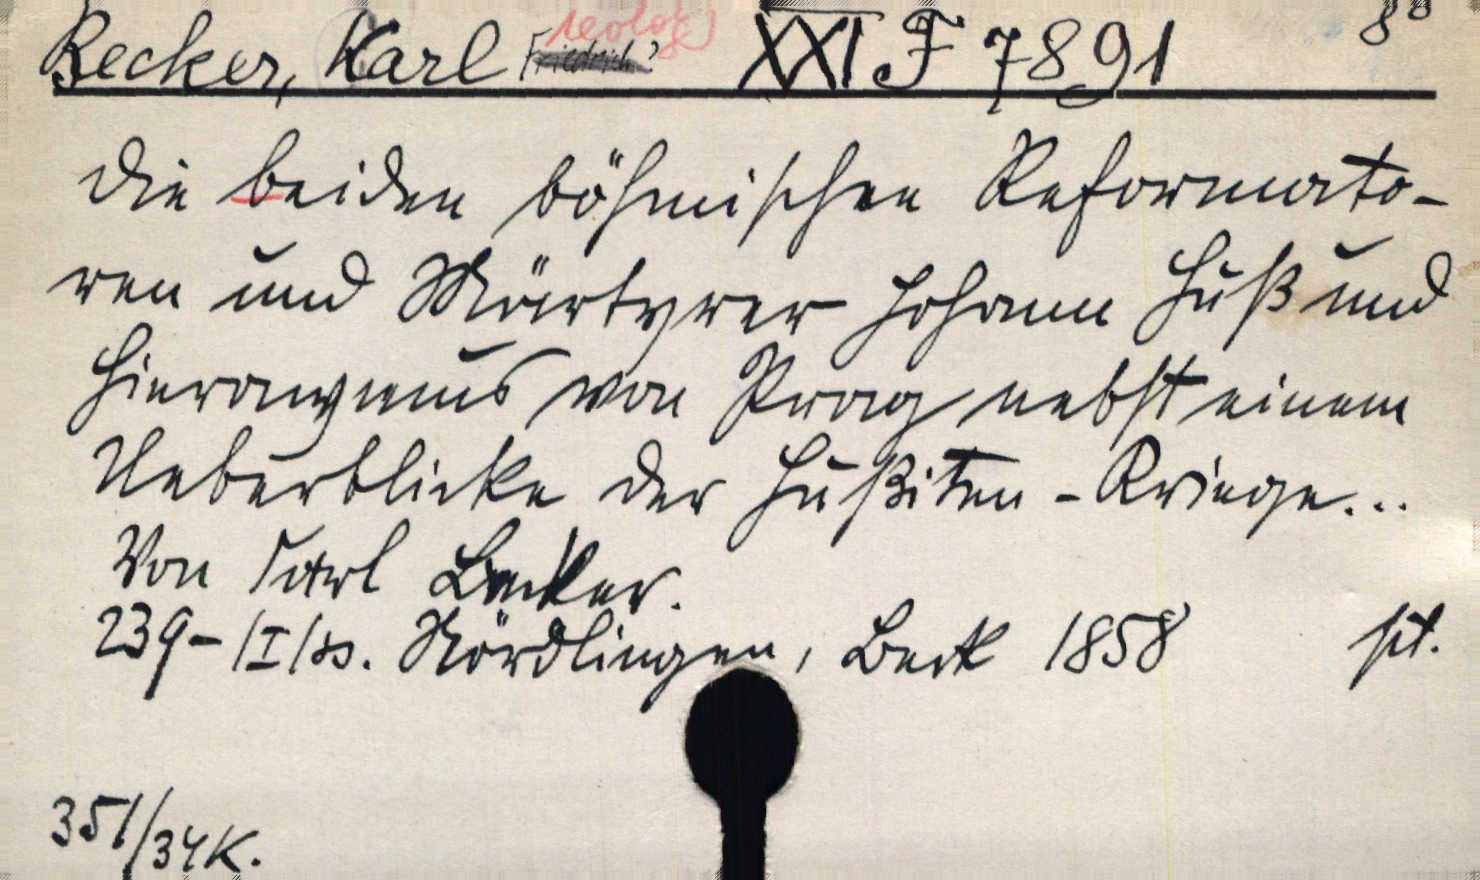 Becker, Karl Friedrich? teolog XXI F 7891 8°
Die beiden böhmischen Reformato-
ren und Märtyrer Johann Huß und
Hieronymus von Prag nebst einem
Ueberblicke der Hußiten-Kriege...
Von Karl Becker.
239-/I/ss. Nördlingen, Beck 1858
351/34K.